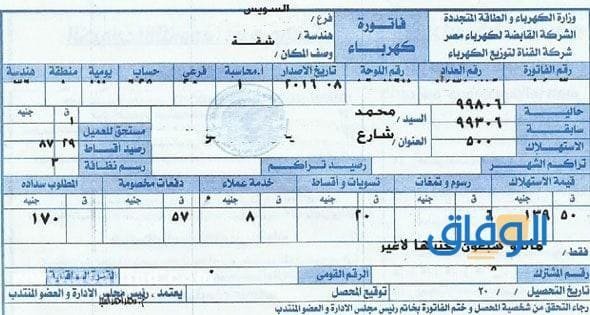 وزارة الكهرباء و الطاقة المتجددة
الشركة القابضة لكهرباء مصر
شركة القناة لتوزيع الكهرباء
فاتورة
كهرباء
السويس
فرع /
هندسة /
شقة
وصف المكان /
رقم الفاتورة رقم العداد رقم اللوحة تاريخ الاصدار أ.محاسبة فرعي حساب يومية منطقة هندسة
٢٠١٦ ٠٨ ١
حالية ٩٩٨٠٦
سابقة ٩٩٣٠٦
الاستهلاك ٥٠٠
السيد / محمد
العنوان / شارع
ق جنيه
مستحق للعميل ١
رصيد أقساط ٢٩ ٨٧
رسم نظافة ٣
تراكم الشهر رصيد تراكم
قيمة الاستهلاك رسوم و تمغات تسويات و أقساط خدمة عملاء دفعات مخصومة المطلوب سداده
ق جنيه ق جنيه ق جنيه جنيه ق جنيه ق جنيه
٥٠ ١٣٩ ٦ ٢٠ ٨ ٥٧ ١٧٠
الوفاق
فقط / لاغير
رقم المشترك ٨ الرقم القومى
تاريخ التحصيل / / ٢٠ توقيع المحصل يعتمد ، رئيس مجلس الادارة و العضو المنتدب
رجاء التحقق من شخصية المحصل و ختم الفاتورة بخاتم رئيس مجلس الادارة و العضو المنتدب